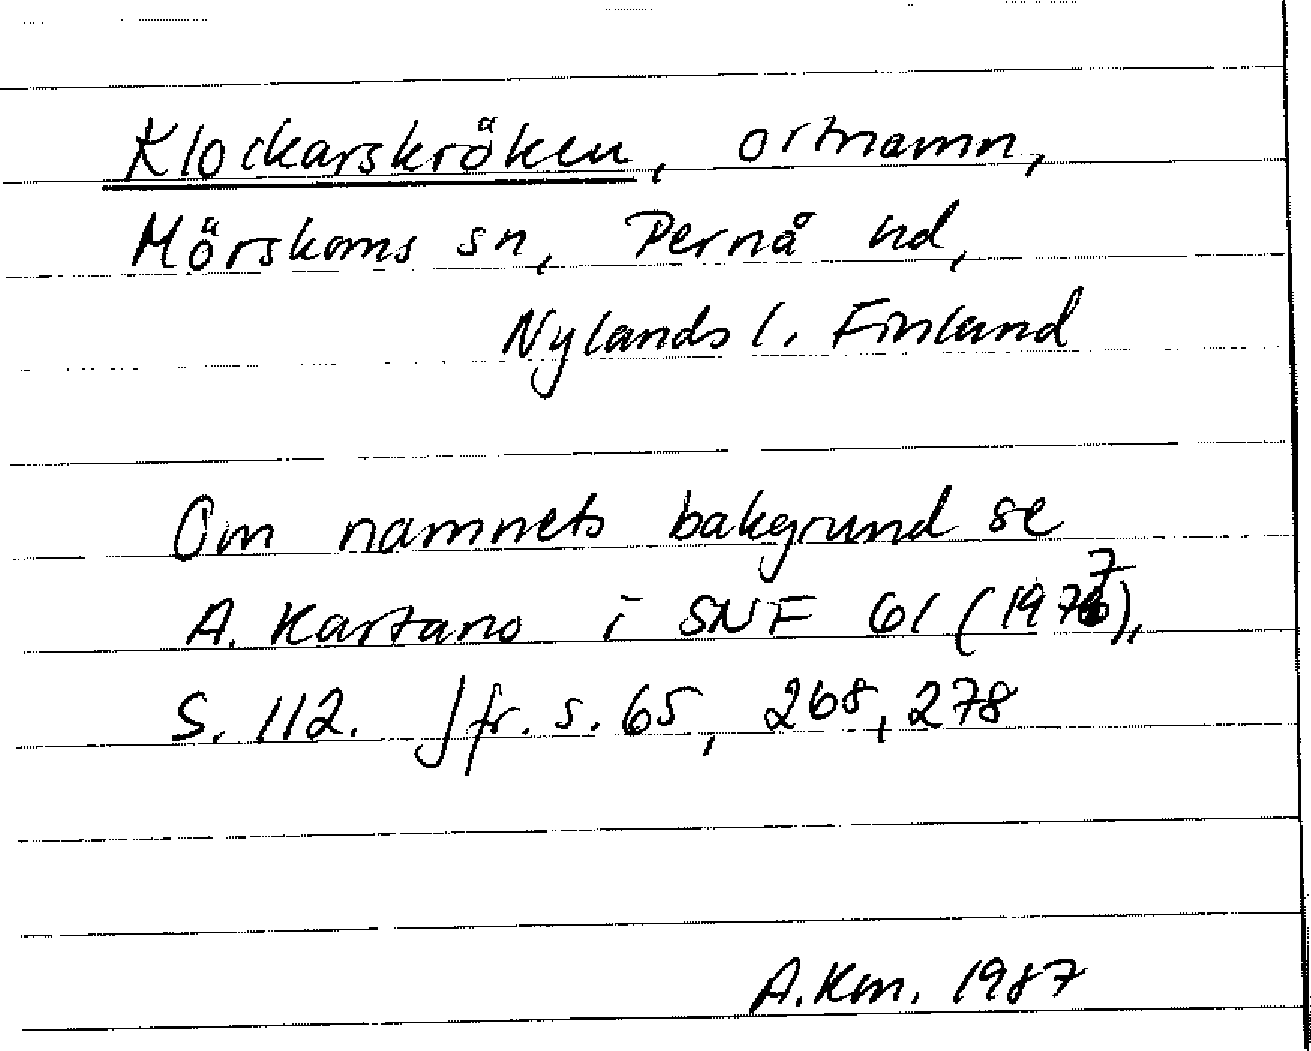 Klockarskröken, ortnamn,
Mörskoms sn, Pernå hd,
Nylands l. Finland
Om namnets bakgrund se
A. Kartano i SNF 61 (1977),
S. 112. Jfr. s. 65, 268, 278
A.Km. 1987